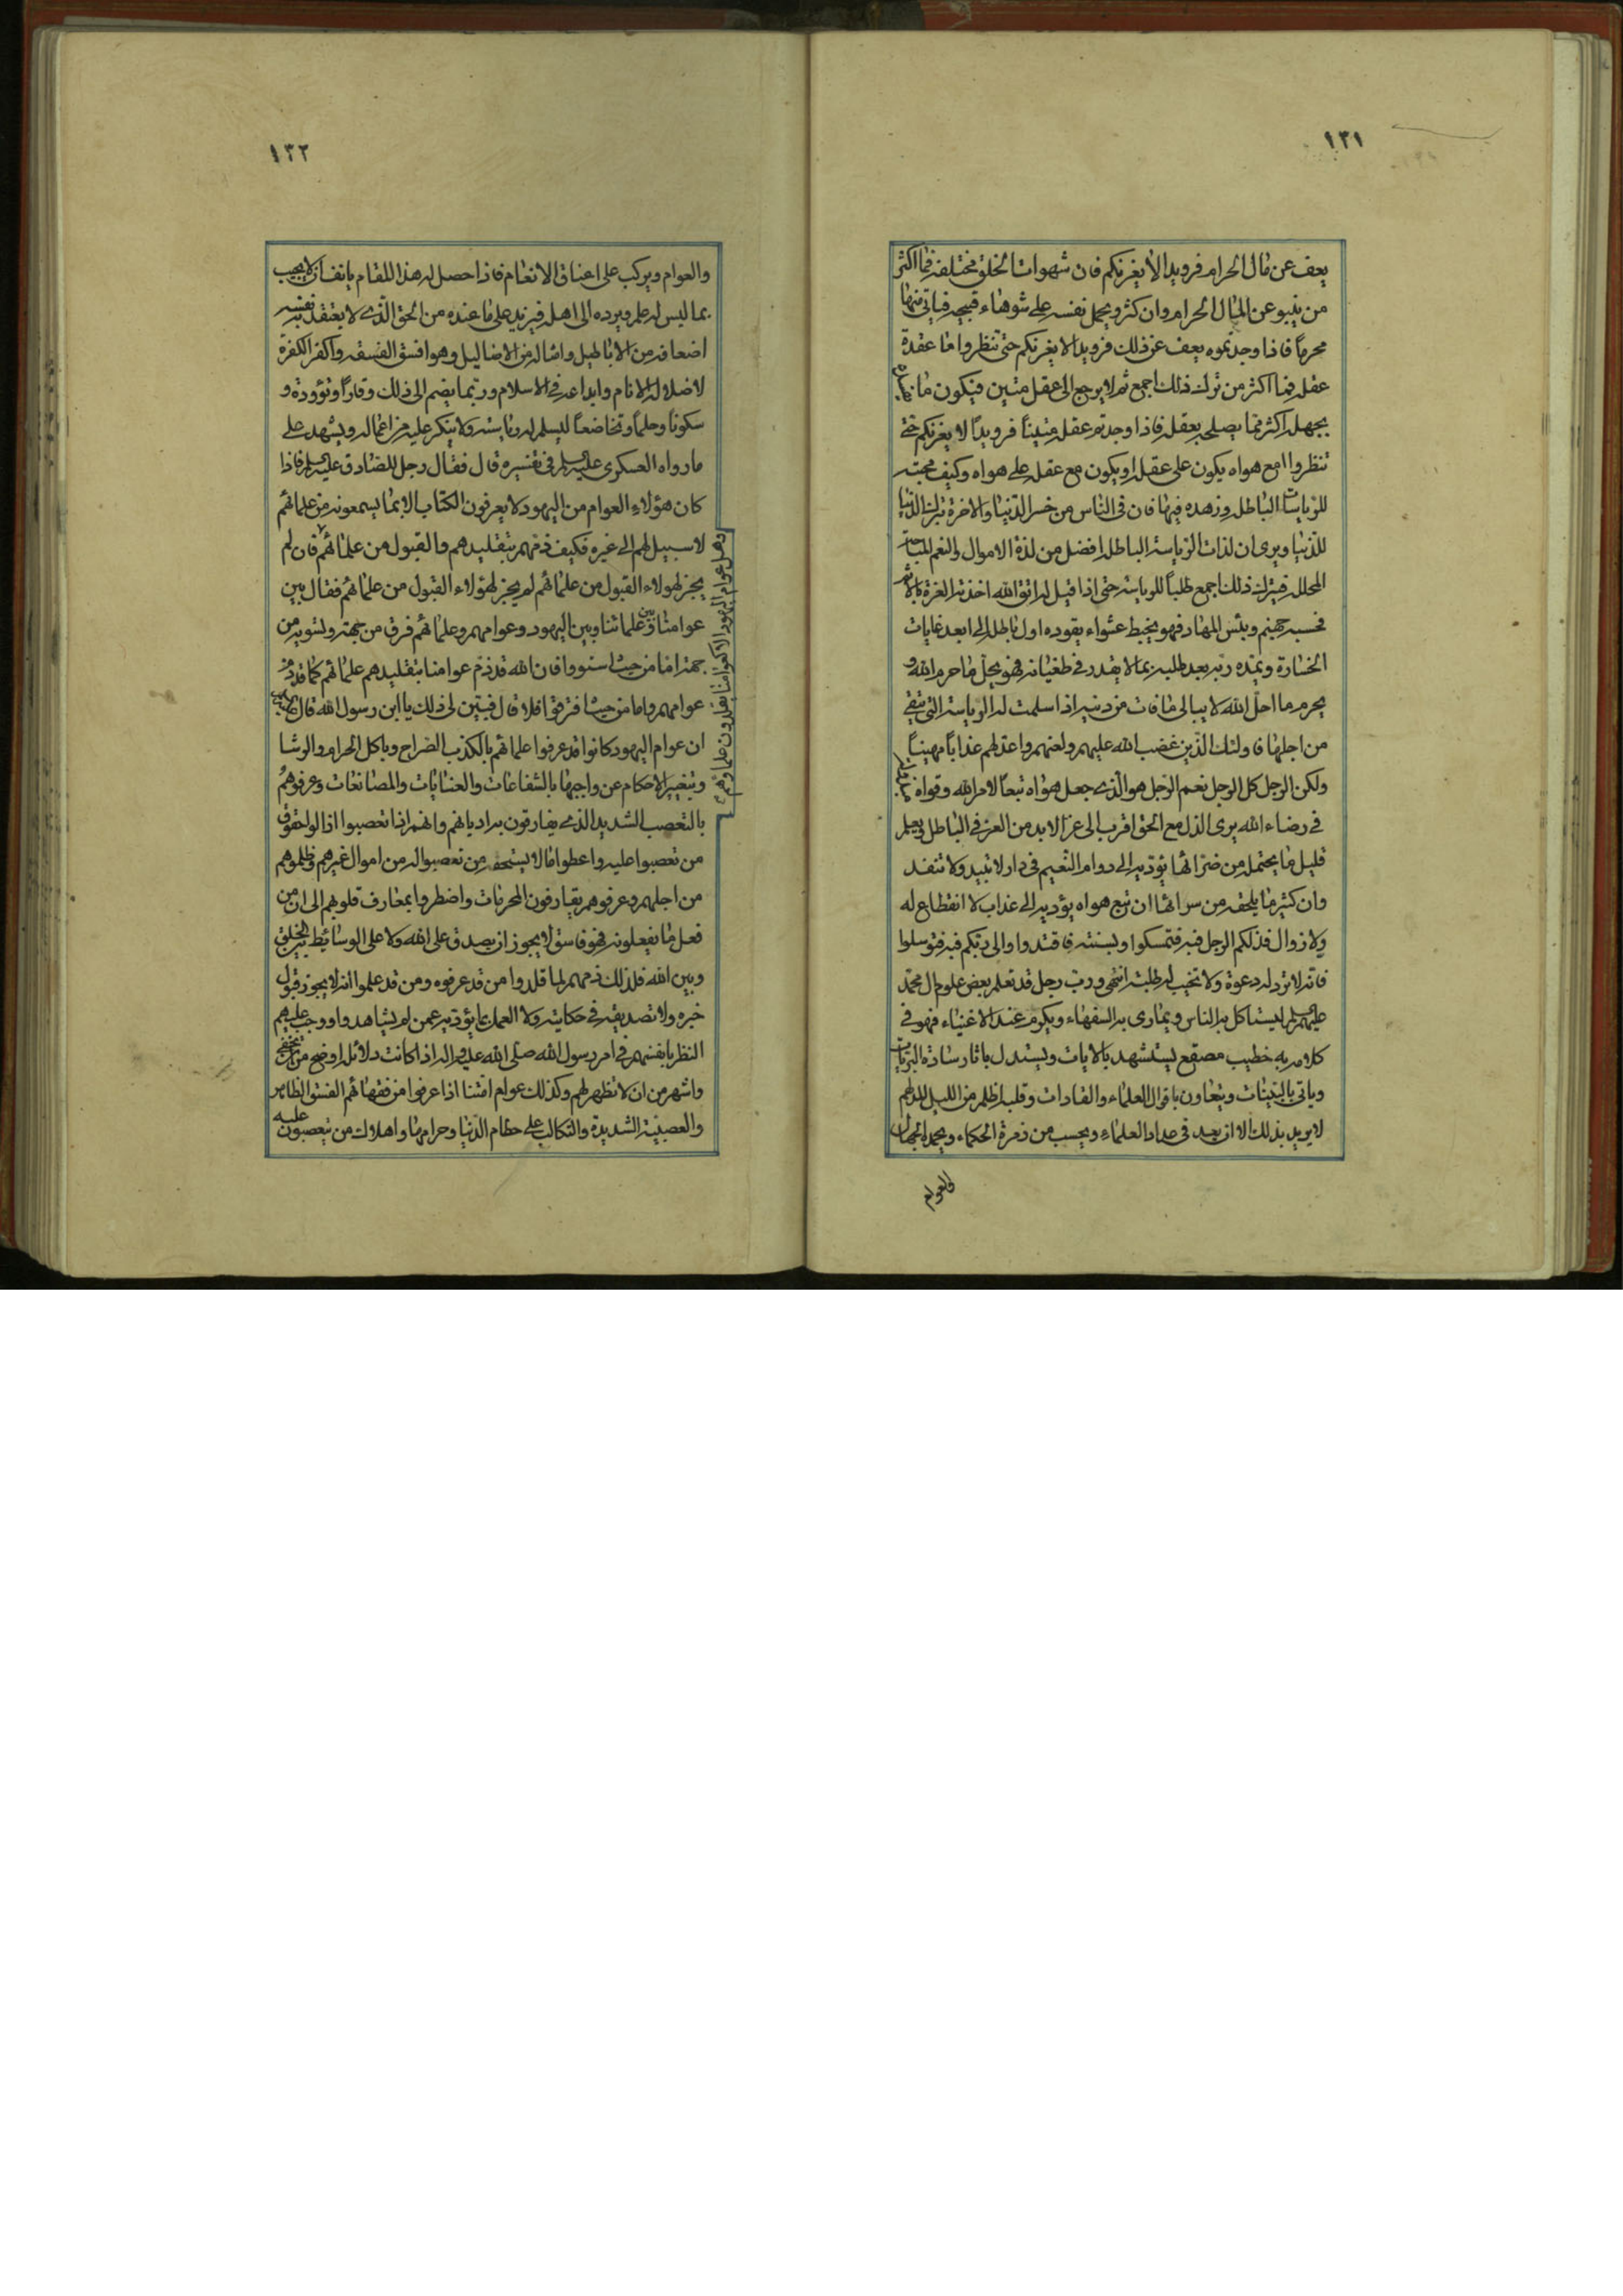 ١٣١
يعف عن مال الحرام فرويدا لا يغرنكم فان شهوات الخلق مختلفة فما اكثر
من ينبو عن المال الحرام وان كثر ويحمل نفسه على شوهاء قبيحة فياتي منها
محرما فاذا وجدتموه يعف عن ذلك فرويدا لا يغرنكم حتى تنظروا ما عقدة
عقله فما اكثر من ترك ذلك اجمع ثم لا يرجع الى عقل متين فيكون ما
يجهله اكثر مما يصلحه بعقله فاذا وجدتم عقله متينا فرويدا لا يغرنكم حتى
تنظروا امع هواه يكون على عقله او يكون مع عقله على هواه وكيف محبته
للرياسات الباطلة وزهده فيها فان في الناس من خسر الدنيا والاخرة بترك الدنيا
للدنيا ويرى ان لذات الرياسة الباطلة افضل من لذة الاموال والنعم المباحة
المحللة فيترك ذلك اجمع طلبا للرياسة حتى اذا قيل له اتق الله اخذته العزة بالاثم
فحسبه جهنم وبئس المهاد فهو يخبط عشواء يقوده اول باطله الى ابعد غايات
الخسارة ويمده ربه بعد طلبه بما لا يقدر في طغيانه فهو يحل ما حرم الله و
يحرم ما احل الله لا يبالي ما فات من دنيه اذا سلمت له الرياسة التي شقي
من اجلها فاولئك الذين غضب الله عليهم ولعنهم واعد لهم عذابا مهينا
ولكن الرجل كل الرجل نعم الرجل هو الذي جعل هواه تبعا لامر الله وقواه
في رضاء الله يرى الذل مع الحق اقرب الى عز الابد من العز في الباطل ويعلم
قليل ما يحتمله من ضرائها يؤديه الى دوام النعيم في دار لا تبيد ولا تنفد
وان كثير ما يلحقه من سرائها ان تبع هواه يؤديه الى عذاب لا انقطاع له
ولا زوال فذلكم الرجل فبه فتمسكوا وبسنته فاقتدوا والى ربكم فبه فتوسلوا
فانه لا ترد له دعوة ولا تخيب له طلبة انتهى ورب رجل قد تعلم بعض علوم ال محمد
عليهم السلم ليستاكل به الناس ويمارى به السفهاء ويكرم عند الاغنياء فهو في
كلامه خطيب مصقع يستشهد بالايات ويستدل باثار سادة البريات
وياتي بالبينات ويتعاون باقوال العلماء والقادات وقلبه اظلم من الليل المدلهم
لا يريد بذلك الا ان يعد في عداد العلماء ويحسب من زمرة الحكماء ويحمد الجهال
والعوام
١٣٢
والعوام ويركب على اعناق الانعام فاذا حصل له هذا المقام يانف ان لا يجيب
بما ليس له علم ويرده الى اهله فيزيد على ما عنده من الحق الذي لا يعتقد به نفسه
اضعافه من الاباطيل وامثاله من الاضاليل وهو افسق الفسقة واكفر الكفرة
لاضلاله الانام وابداعه في الاسلام وربما يضم الى ذلك وقارا وتؤودة و
سكونا وحلما وتخاضعا ليسلم له رياسته ولا ينكر عليه من اعماله ويشهد على
ما رواه العسكري عليه السلم في تفسيره قال فقال رجل للصادق عليه السلم فاذا
كان هؤلاء العوام من اليهود لا يعرفون الكتاب الا بما يسمعونه من علمائهم
لا سبيل لهم الى غيره فكيف ذمهم بتقليدهم والقبول من علمائهم فان لم
وهل عوام اليهود الا كعوامنا يقلدون علماءهم
يجز لهولاء القبول من علمائهم لم يجز لهؤلاء القبول من علمائهم فقال بين
عوامنا وبين علمائنا وبين اليهود وعوامهم وعلمائهم فرق من جهة وتسوية من
جهة اما من حيث استووا فان الله قد ذم عوامنا بتقليدهم علمائهم كما قد ذم
عوامهم واما من حيث افترقوا فلا قال فبين لي ذلك يا ابن رسول الله قال
ان عوام اليهود كانوا قد عرفوا علمائهم بالكذب الصراح وباكل الحرام والرشا
وبتغيير الاحكام عن واجبها بالشفاعات والعنايات والمصانعات وعرفوهم
بالتعصب الشديد الذي يفارقون به اديانهم وانهم اذا تعصبوا ازالوا حقوق
من تعصبوا عليه واعطوا ما لا يستحقه من تعصبوا له من اموال غيرهم وظلموهم
من اجلهم وعرفوهم يقارفون المحرمات واضطروا بمعارف قلوبهم الى ان من
فعل ما يفعلونه فهو فاسق لا يجوز ان يصدق على الله ولا على الوسائط بين الخلق
وبين الله فلذلك ذمهم لما قلدوا من قد عرفوه ومن قد علموا انه لا يجوز قبول
خبره ولا تصديقه في حكايته ولا العمل بما يؤديه عمن لم يشاهدوا ووجب عليهم
النظر بانفسهم في امر رسول الله صلى الله عليه واله اذا كانت دلائله اوضح من ان تخفى
واشهر من ان لا تظهر لهم وكذلك عوام امتنا اذا عرفوا من فقهائهم الفسق الظاهر
والعصبية الشديدة والتكالب على حطام الدنيا وحرامها واهلاك من يتعصبون عليه